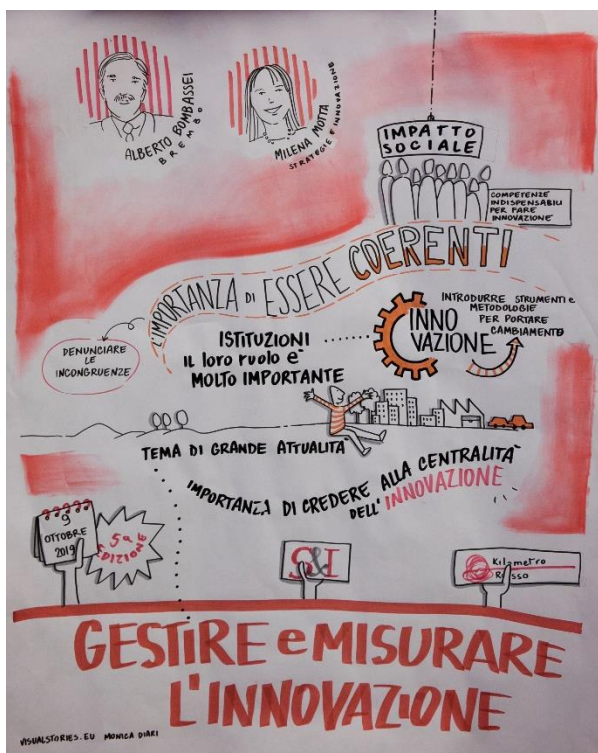 ALBERTO BOMBASSEI
BREMBO
MILENA MOTTA
STRATEGIE E INNOVAZIONE
IMPATTO
SOCIALE
COMPETENZE
INDISPENSABILI
PER FARE
INNOVAZIONE
L'IMPORTANZA DI ESSERE COERENTI
DENUNCIARE
LE
INCONGRUENZE
ISTITUZIONI
IL loro ruolo è
MOLTO IMPORTANTE
INNO
VAZIONE
INTRODURRE STRUMENTI e
METODOLOGIE
PER PORTARE
CAMBIAMENTO
TEMA DI GRANDE ATTUALITÀ
IMPORTANZA DI CREDERE ALLA CENTRALITÀ
DELL'INNOVAZIONE
9
OTTOBRE
2019
5ª
EDIZIONE
S&I
Kilometro
Rosso
GESTIRE e MISURARE
L'INNOVAZIONE
VISUALSTORIES.EU MONICA DIARI